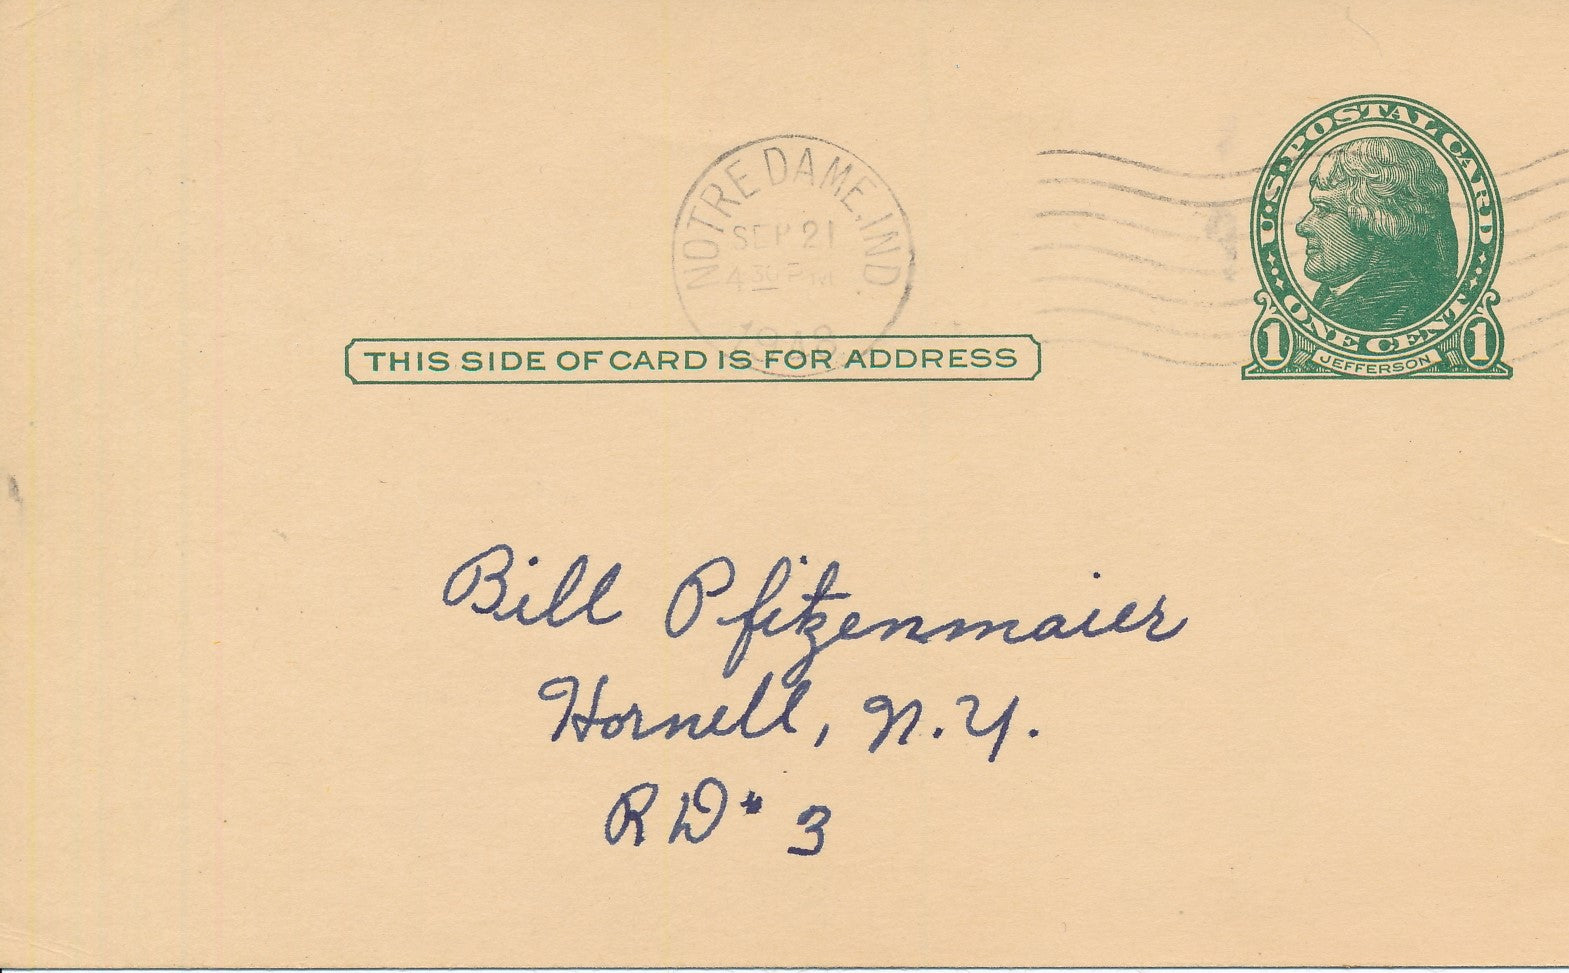 U.S. POSTAL CARD
NOTRE DAME, IND.
SEP 21
4 30 PM
1948
1 ONE CENT 1
JEFFERSON
THIS SIDE OF CARD IS FOR ADDRESS
Bill Pfitzenmaier
Hornell, N.Y.
RD # 3